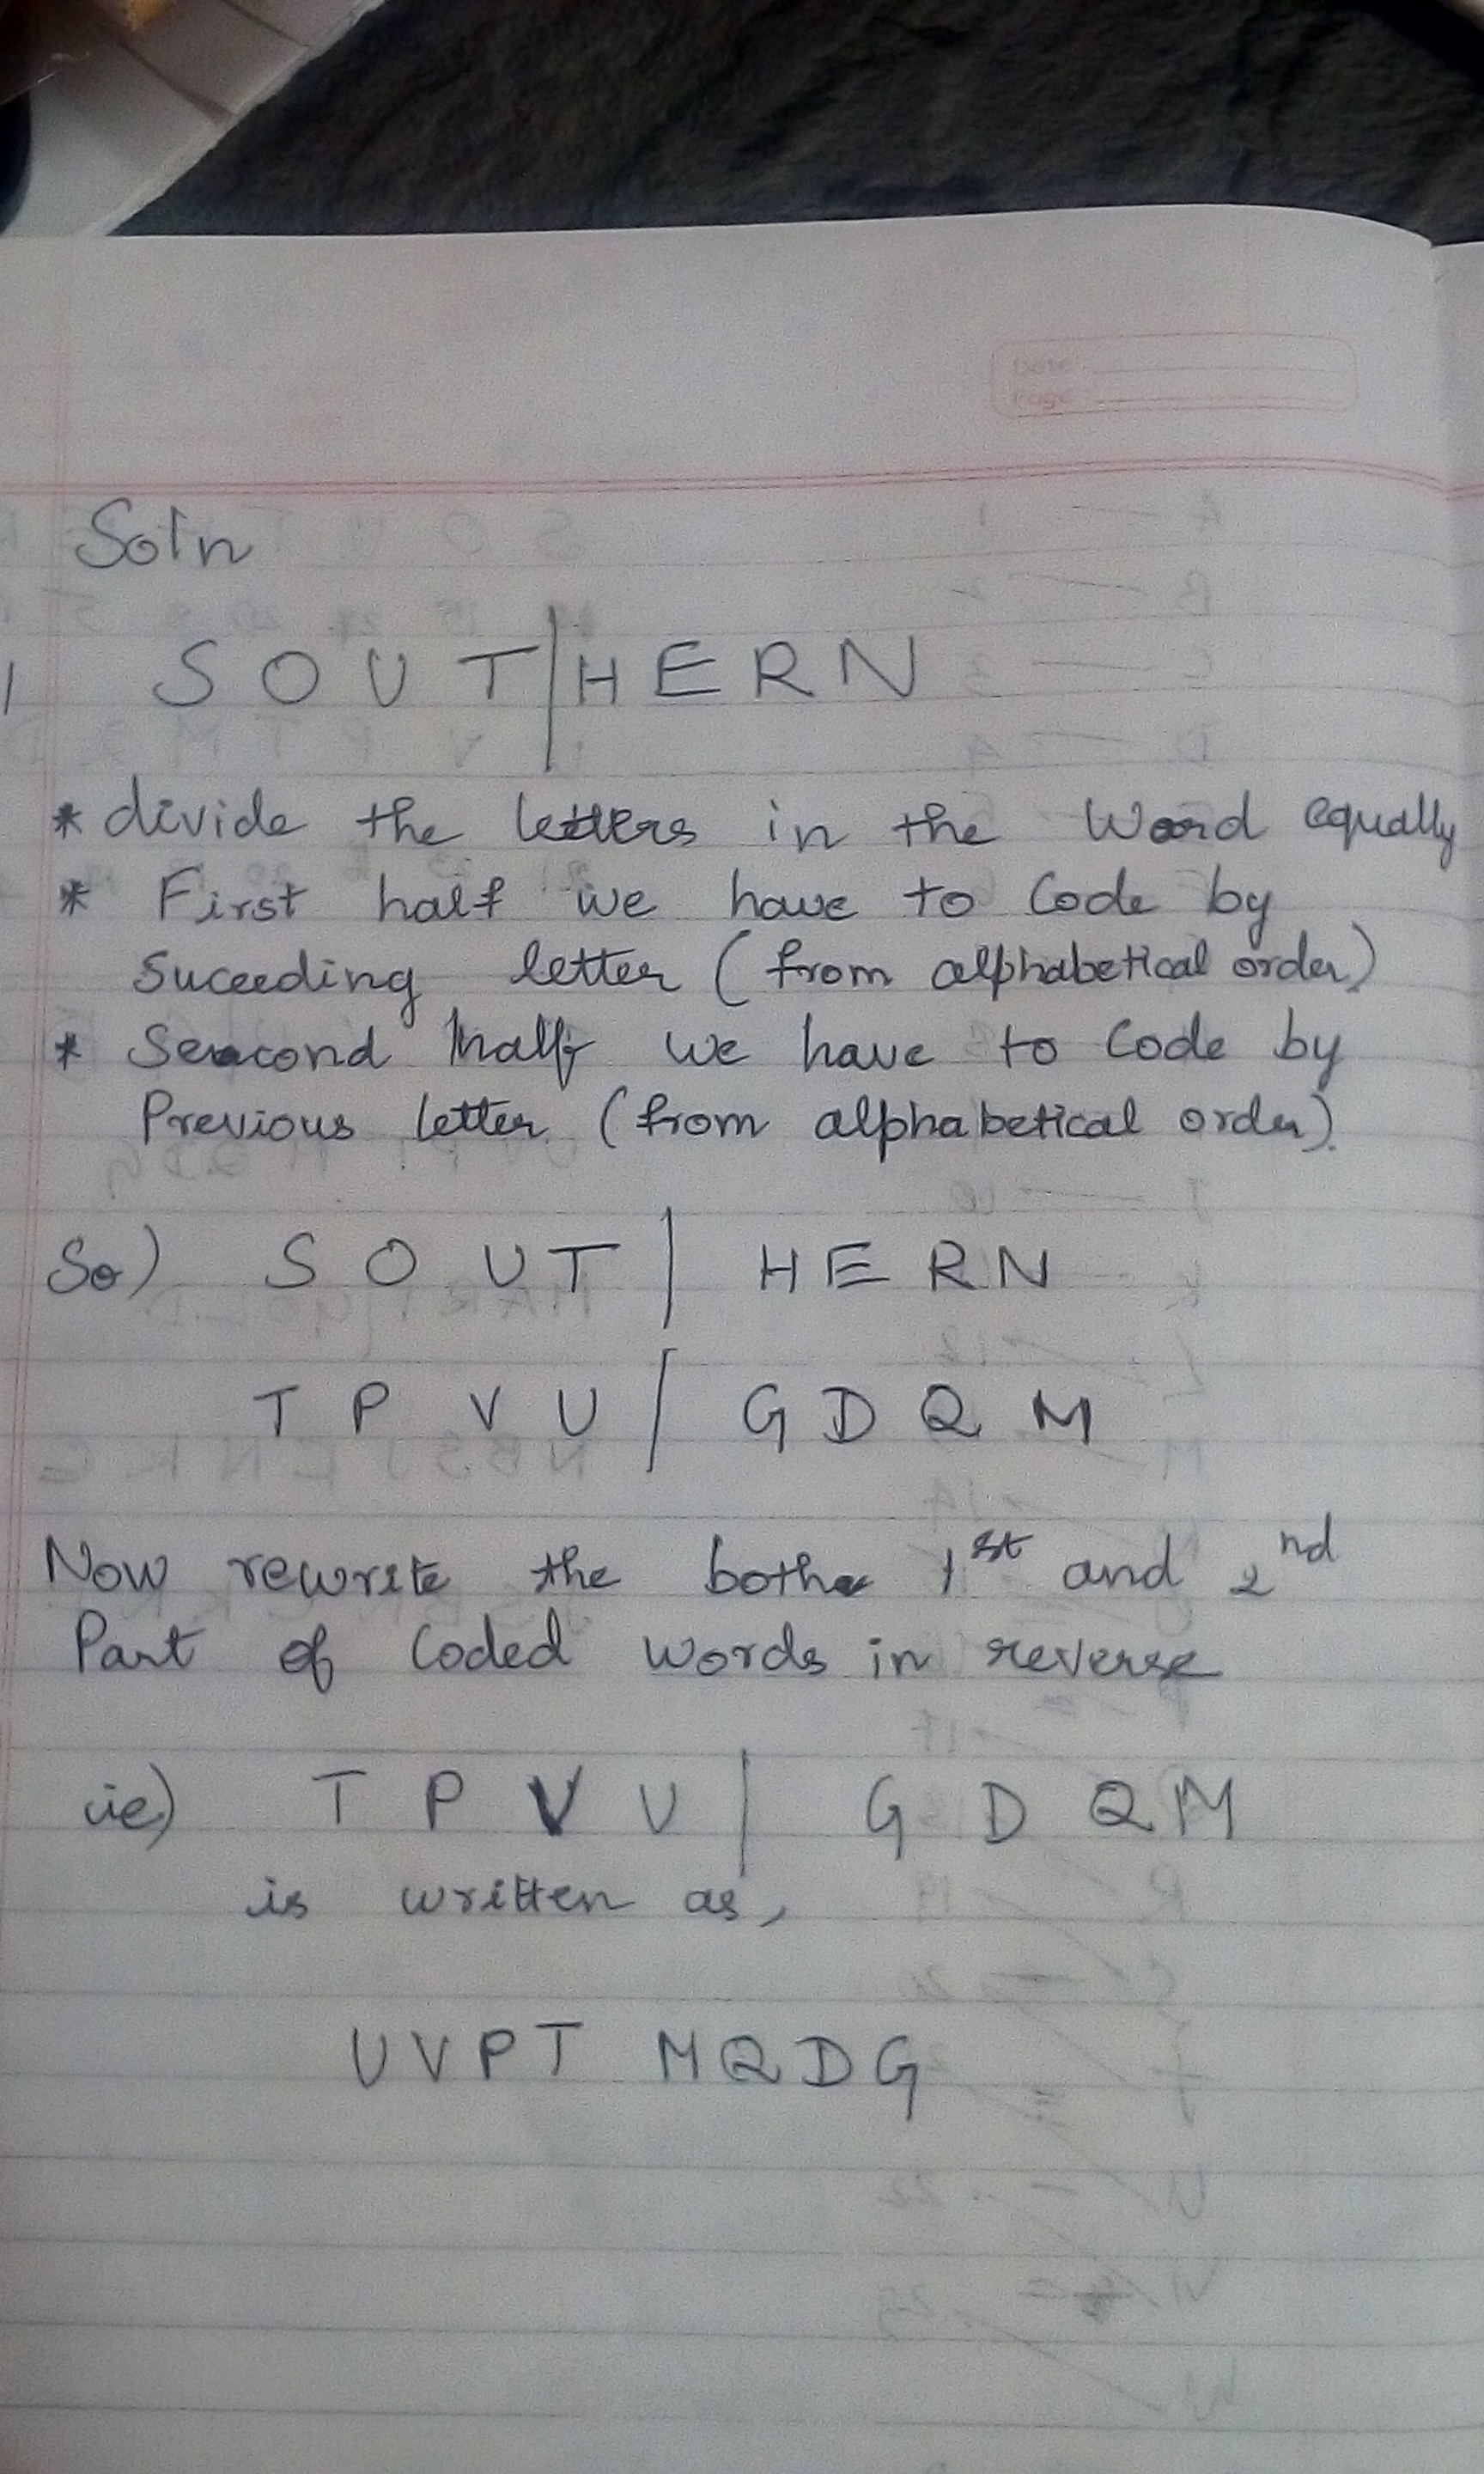 Date
Page
Soln
1 S O U T | H E R N
* divide the letters in the Word equally
* First half we have to Code by
Suceeding letter (from alphabetical order)
* Second half we have to Code by
Previous letter (from alphabetical order).
So) S O U T | H E R N
T P V U | G D Q M
Now rewrite the both 1st and 2nd
Part of Coded Words in reverse
ie) T P V U | G D Q M
is written as,
UVPT MQDG